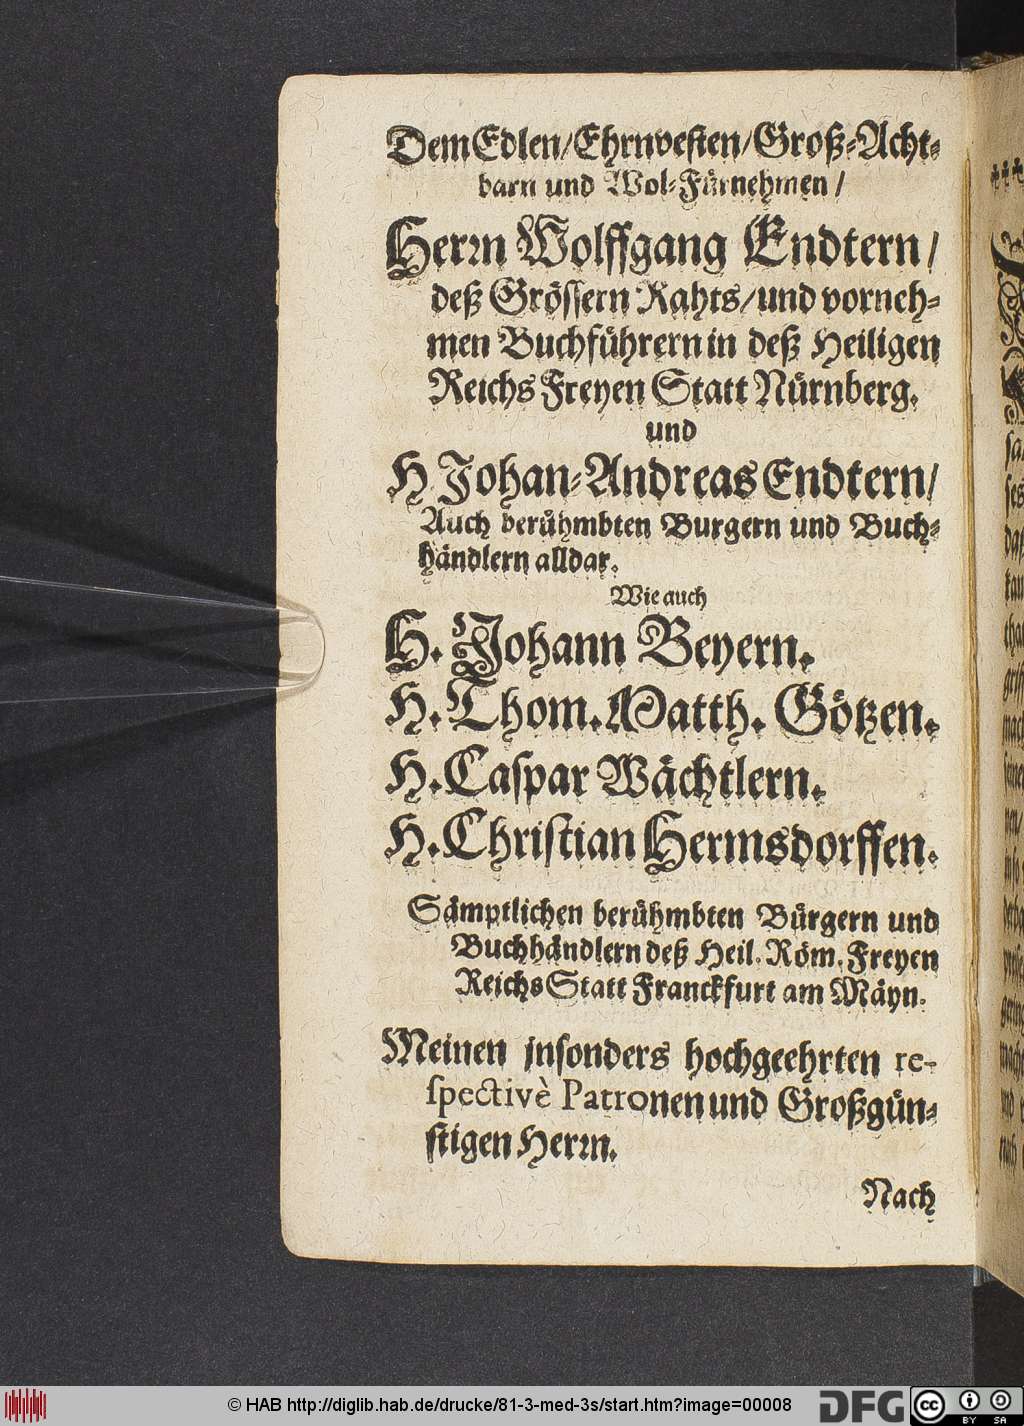 Dem Edlen/Ehrnvesten/Groß-Acht-
barn und Wol-Fürnehmen/
Herrn Wolffgang Endtern/
deß Grössern Rahts/und vorneh-
men Buchführern in deß Heiligen
Reichs Freyen Statt Nürnberg.
und
H Johan-Andreas Endtern/
Auch berühmbten Burgern und Buch-
händlern alldar.
Wie auch
H. Johann Beyern.
H. Thom. Matth. Götzen.
H. Caspar Wächtlern.
H. Christian Hermsdorffen.
Sämptlichen berühmbten Bürgern und
Buchhändlern deß Heil. Röm. Freyen
Reichs Statt Franckfurt am Mäyn.
Meinen insonders hochgeehrten re-
spectivè Patronen und Großgün-
stigen Herrn.
Nach
© HAB http://diglib.hab.de/drucke/81-3-med-3s/start.htm?image=00008
DFG
cc
BY SA